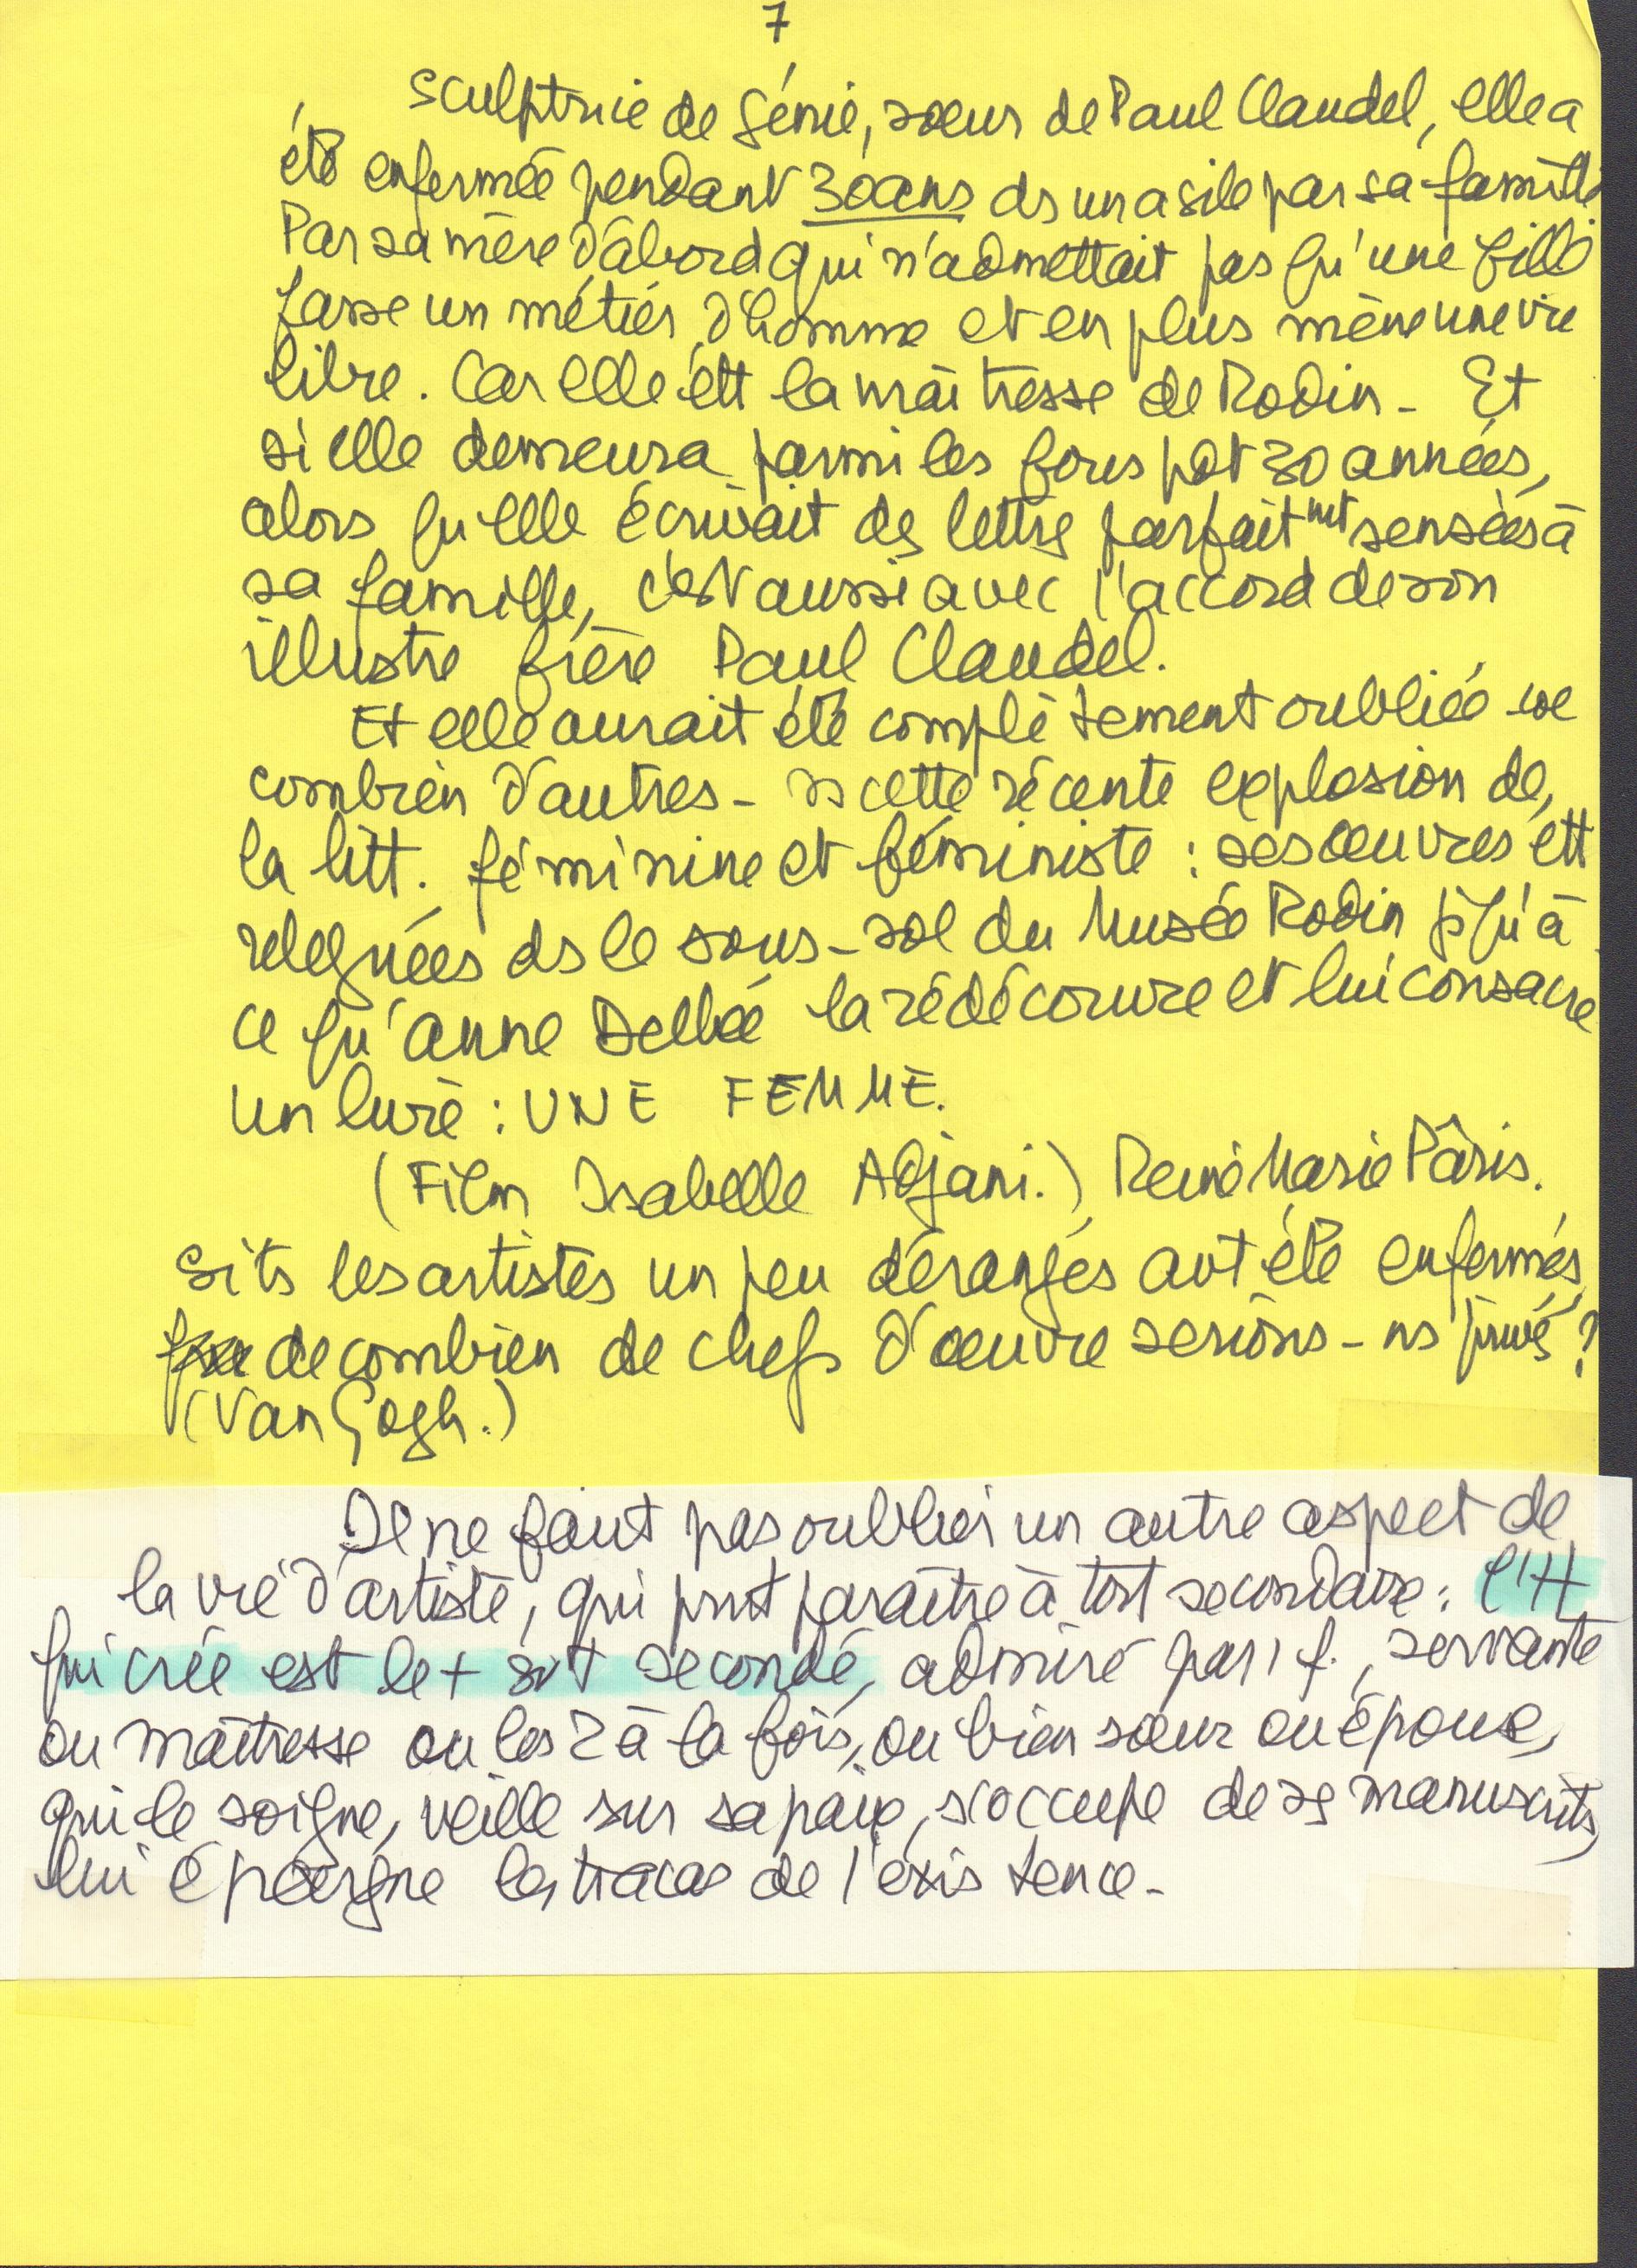 7
Sculptrice de génie, soeur de Paul Claudel, elle a
été enfermée pendant 30 ans ds un asile par sa famille
Par sa mère d'abord qui n'admettait pas qu'une fille
fasse un métier d'homme et en plus mène une vie
libre. Car elle étt la maîtresse de Rodin - Et
si elle demeura parmi les fous pdt 30 années,
alors qu'elle écrivait des lettres parfaitmt sensées à
sa famille, c'est aussi avec l'accord de son
illustre frère Paul Claudel.
Et elle aurait été complètement oubliée - 
combien d'autres - ss cette récente explosion de
la litt. féminine et féministe : ses oeuvres étt
reléguées ds le sous-sol du Musée Rodin jqu'à
ce qu'Anne Delbée la rédécouvre et lui consacre
un livre : UNE FEMME.
(Film Isabelle Adjani.) Reine Marie Pâris.
Si ts les artistes un peu dérangés avt été enfermés
de combien de chefs d'oeuvre serions-ns privés ?
(Van Gogh.)
Il ne faut pas oublier un autre aspect de
la vie d'artiste, qui peut paraître à tort secondaire : l'H
qui crée est le + svt secondé, admiré par 1 f., servante
ou maîtresse ou les 2 à la fois, ou bien soeur ou épouse,
qui le soigne, veille sur sa paix, s'occupe de ses manuscrits,
lui épargne les tracas de l'existence -